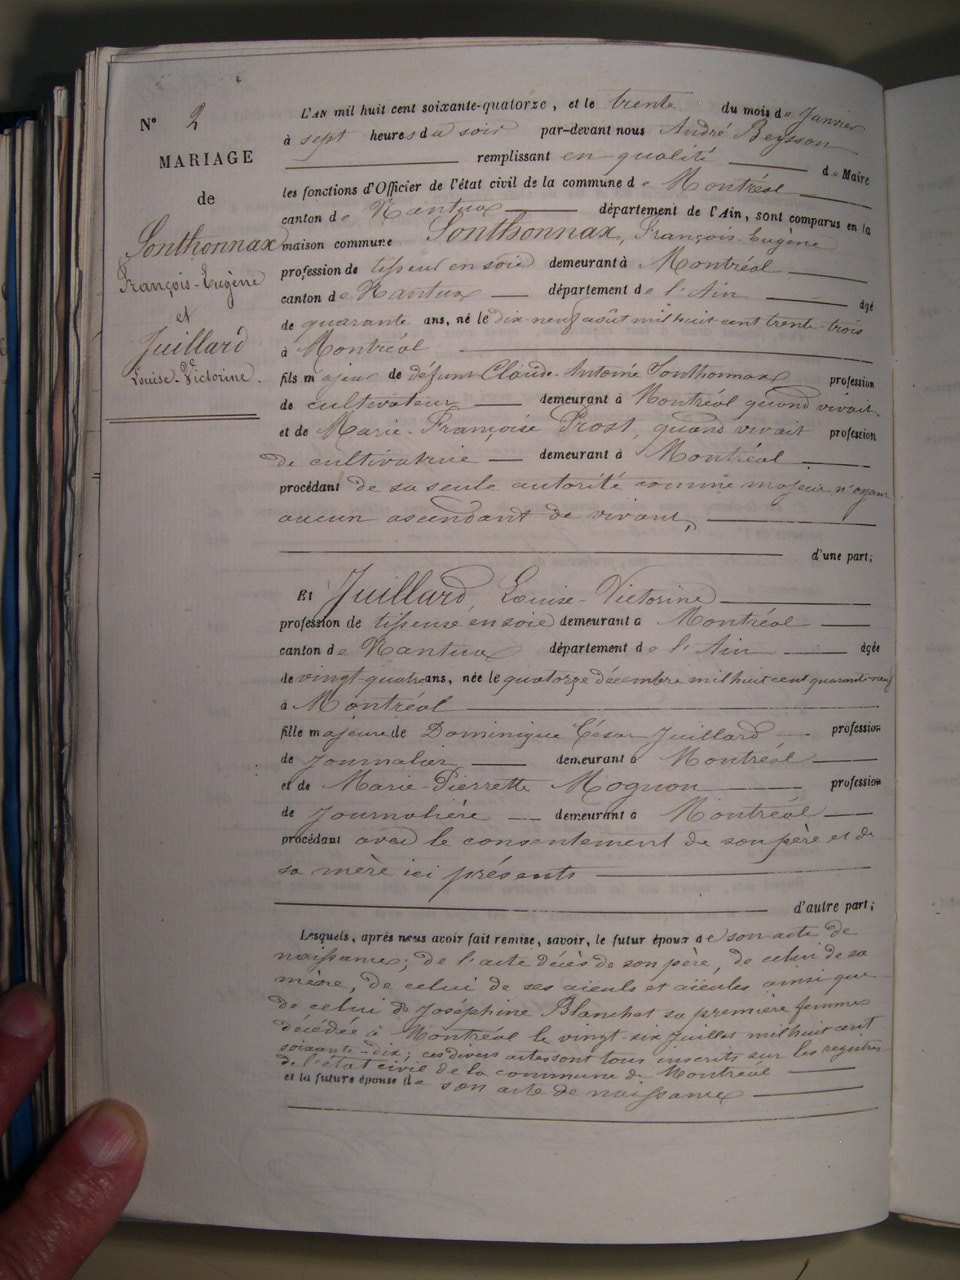 N° 2
MARIAGE
de
Sonthonnax
François-Eugène
et
Juillard
Louise-Victorine.
L'AN mil huit cent soixante-quatorze, et le trente du mois de Janvier
à sept heures du soir par-devant nous André Beysson
remplissant en qualité de Maire
les fonctions d'Officier de l'état civil de la commune de Montréal
canton de Nantua département de l'Ain, sont comparus en la
maison commune Sonthonnax, François-Eugène
profession de tisseur en soie demeurant à Montréal
canton de Nantua département de l'Ain âgé
de quarante ans, né le dix-neuf août mil huit cent trente-trois
à Montréal
fils majeur de defunt Claude-Antoine Sonthonnax profession
de cultivateur demeurant à Montréal quand vivait
et de Marie-Françoise Prost, quand vivait profession
de cultivatrice demeurant à Montréal
procédant de sa seule autorité comme majeur n'ayant
aucun ascendant de vivant,
d'une part;
Et Juillard, Louise-Victorine
profession de tisseuse en soie demeurant à Montréal
canton de Nantua département de l'Ain âgée
de vingt-quatre ans, née le quatorze décembre mil huit cent quarante-neuf
à Montréal
fille majeure de Dominique César Juillard profession
de Journalier demeurant à Montréal
et de Marie-Pierrette Mognon profession
de Journalière demeurant à Montréal
procédant avec le consentement de son père et de
sa mère ici présents
d'autre part;
Lesquels, après nous avoir fait remise, savoir, le futur époux de son acte de
naissance; de l'acte décès de son père, de celui de sa
mère, de celui de ses aieuls et aieules ainsi que
de celui de Joséphine Blanchet sa première femme
décédée à Montréal le vingt-six juillet mil huit cent
soixante-dix; ces divers actes sont tous inscrits sur les registres
de l'état civil de la commune de Montréal
et la future épouse de son acte de naissance